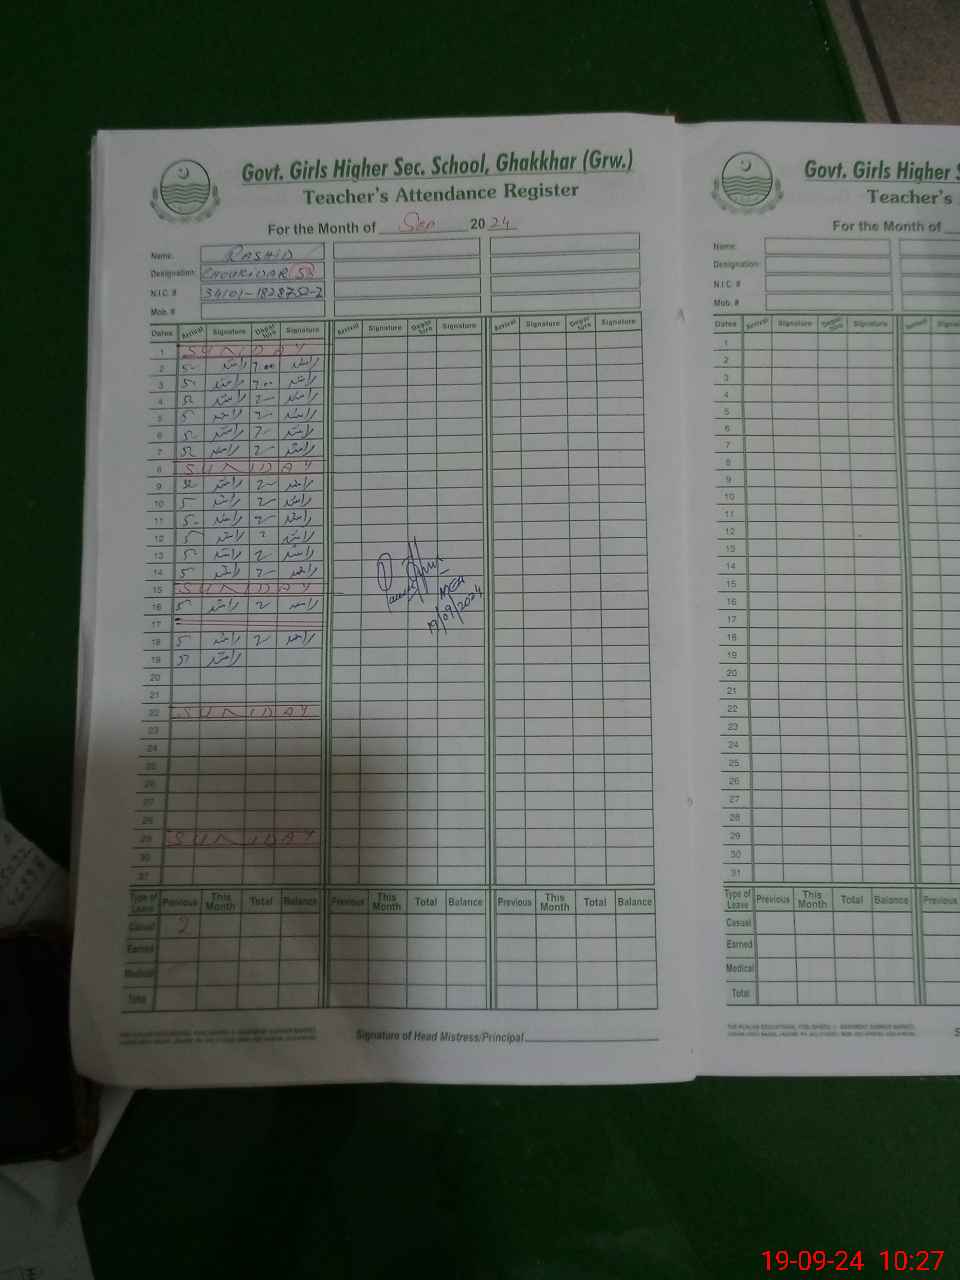 Govt. Girls Higher Sec. School, Ghakkhar (Grw.)
Teacher's Attendance Register
For the Month of Sep 2024
Name: RASHID
Designation: CHOUKIDAR
N.I.C. # 34101-1828752-2
Mob. #
Dates Arrival Signature Depar ture Signature Arrival Signature Depar ture Signature Arrival Signature Depar ture Signature
1 SUNDAY
2 5 راشد 7.00 راشد
3 5 راشد 7.00 راشد
4 5 راشد 7 راشد
5 5 راشد 7 راشد
6 5 راشد 7 راشد
7 5 راشد 7 راشد
8 SUNDAY
9 5 راشد 7 راشد
10 5 راشد 7 راشد
11 5 راشد 7 راشد
12 5 راشد 7 راشد
13 5 راشد 7 راشد
14 5 راشد 7 راشد
15 SUNDAY
16 5 راشد 7 راشد
17
18 5 راشد 7 راشد
19 5 راشد
20
21
22 SUNDAY
23
24
25
26
27
28
29 SUNDAY
30
31
MEA
19/09/2024
Type of Leave Previous This Month Total Balance Previous This Month Total Balance Previous This Month Total Balance
Casual 2
Earned
Medical
Total
Signature of Head Mistress/Principal
Govt. Girls Higher S
Teacher's
For the Month of
Name:
Designation:
N.I.C. #
Mob. #
Dates Arrival Signature Depar ture Signature Arrival
1
2
3
4
5
6
7
8
9
10
11
12
13
14
15
16
17
18
19
20
21
22
23
24
25
26
27
28
29
30
31
Type of Leave Previous This Month Total Balance Previous
Casual
Earned
Medical
Total
S
19-09-24 10:27